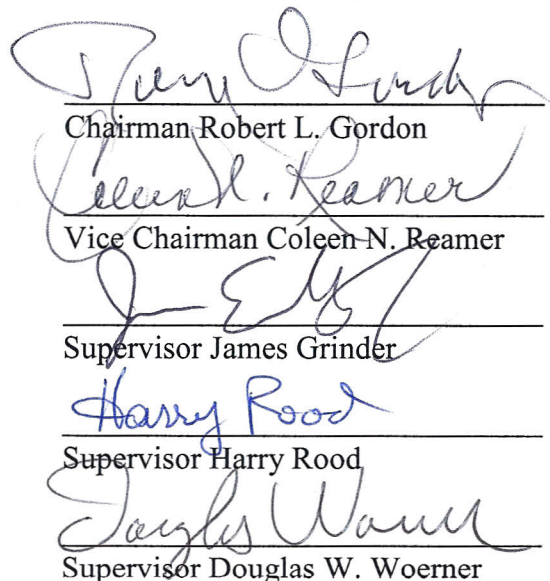 Chairman Robert L. Gordon
Coleen N. Reamer
Vice Chairman Coleen N. Reamer
Supervisor James Grinder
Harry Rood
Supervisor Harry Rood
Douglas Woerner
Supervisor Douglas W. Woerner